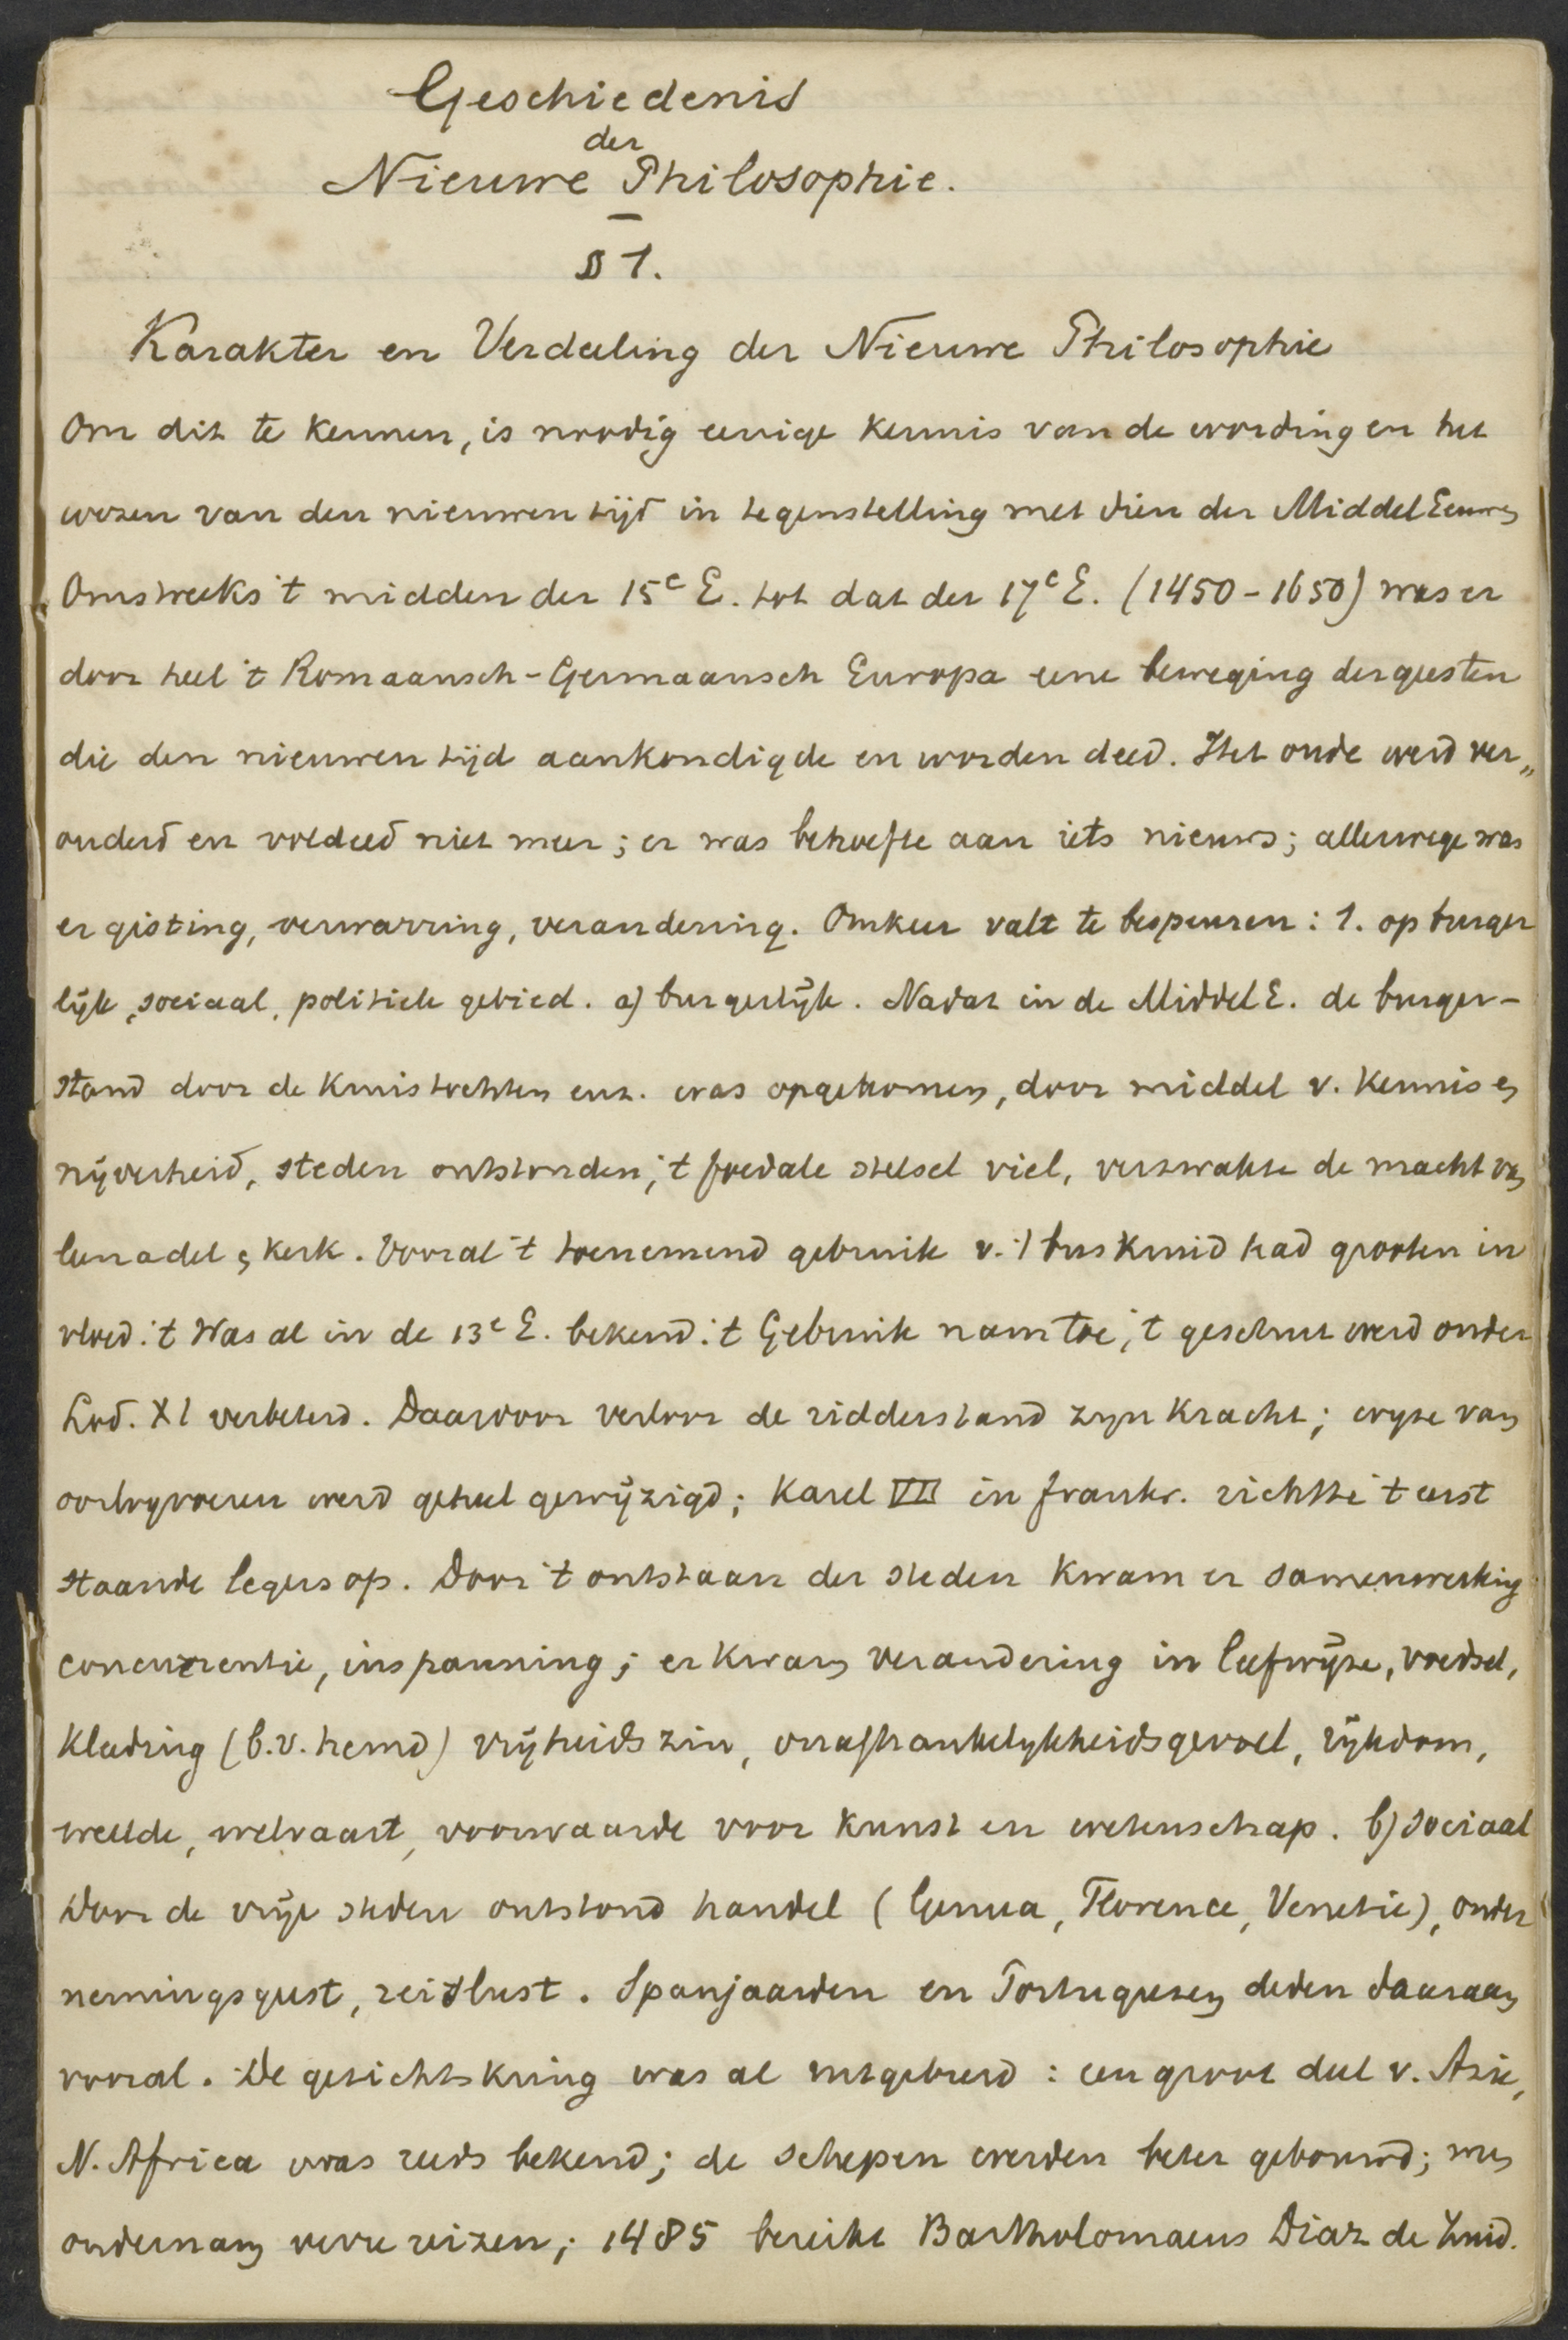 Geschiedenis
der
Nieuwe Philosophie.
§ 1.
Karakter en Verdeeling der Nieuwe Philosophie
Om dit te kennen, is noodig eenige kennis van de wording en het
wezen van den nieuwen tijd in tegenstelling met dien der Middel Eeuwen
Omstreeks 't midden der 15e E. tot dat der 17e E. (1450-1650) was er
door heel 't Romaansch-Germaansch Europa eene beweging der geesten
die den nieuwen tijd aankondigde en worden deed. Het oude werd ver„
ouderd en voldeed niet meer; er was behoefte aan iets nieuws; allerwege was
er gisting, verwarring, verandering. Omkeer valt te bespeuren: 1. op burger
lijk, sociaal, politiek gebied. a) burgerlijk. Nadat in de Middel E. de burger-
stand door de Kruistochten enz. was opgekomen, door middel v. kennis en
nijverheid, steden ontstonden, 't feodale stelsel viel, verzwakte de macht van
leenadel en kerk. Vooral 't toenemend gebruik v. 't buskruid had grooten in
vloed. 't Was al in de 13e E. bekend. 't Gebruik nam toe, 't geschut werd onder
Lod. XI verbeterd. Daardoor verloor de ridderstand zyn kracht; wyze van
oorlogvoeren werd geheel gewijzigd; Karel VII in Frankr. richtte 't eerst
staande legers op. Door 't ontstaan der steden kwam er samenwerking
concurrentie, inspanning; er kwam verandering in leefwijze, voedsel,
kleeding (b.v. hemd) vrijheidszin, onafhankelykheidsgevoel, rijkdom,
weelde, welvaart, voorwaarde voor kunst en wetenschap. b) sociaal
Door de vrije steden ontstond handel (Genua, Florence, Venetie), onder
nemingsgeest, reislust. Spanjaarden en Portugeezen deden daaraan
vooral. De gezichtskring was al uitgebreid: een groot deel v. Azie,
N. Africa was reeds bekend; de schepen werden beter gebouwd; men
ondernam verre reizen; 1485 bereikt Bartholomaeus Diaz de Zuid.